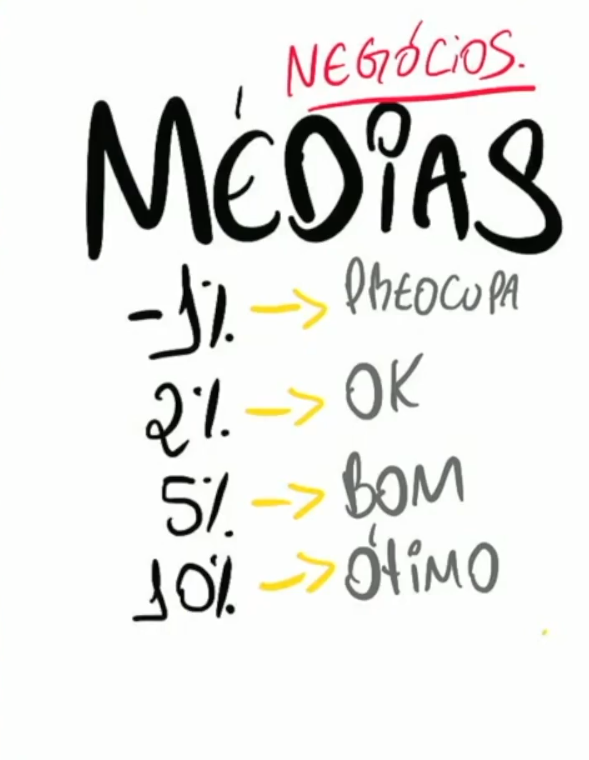 NEGÓCIOS.
MÉDIAS
-1% → PREOCUPA
2% → OK
5% → BOM
10% → ÓTIMO